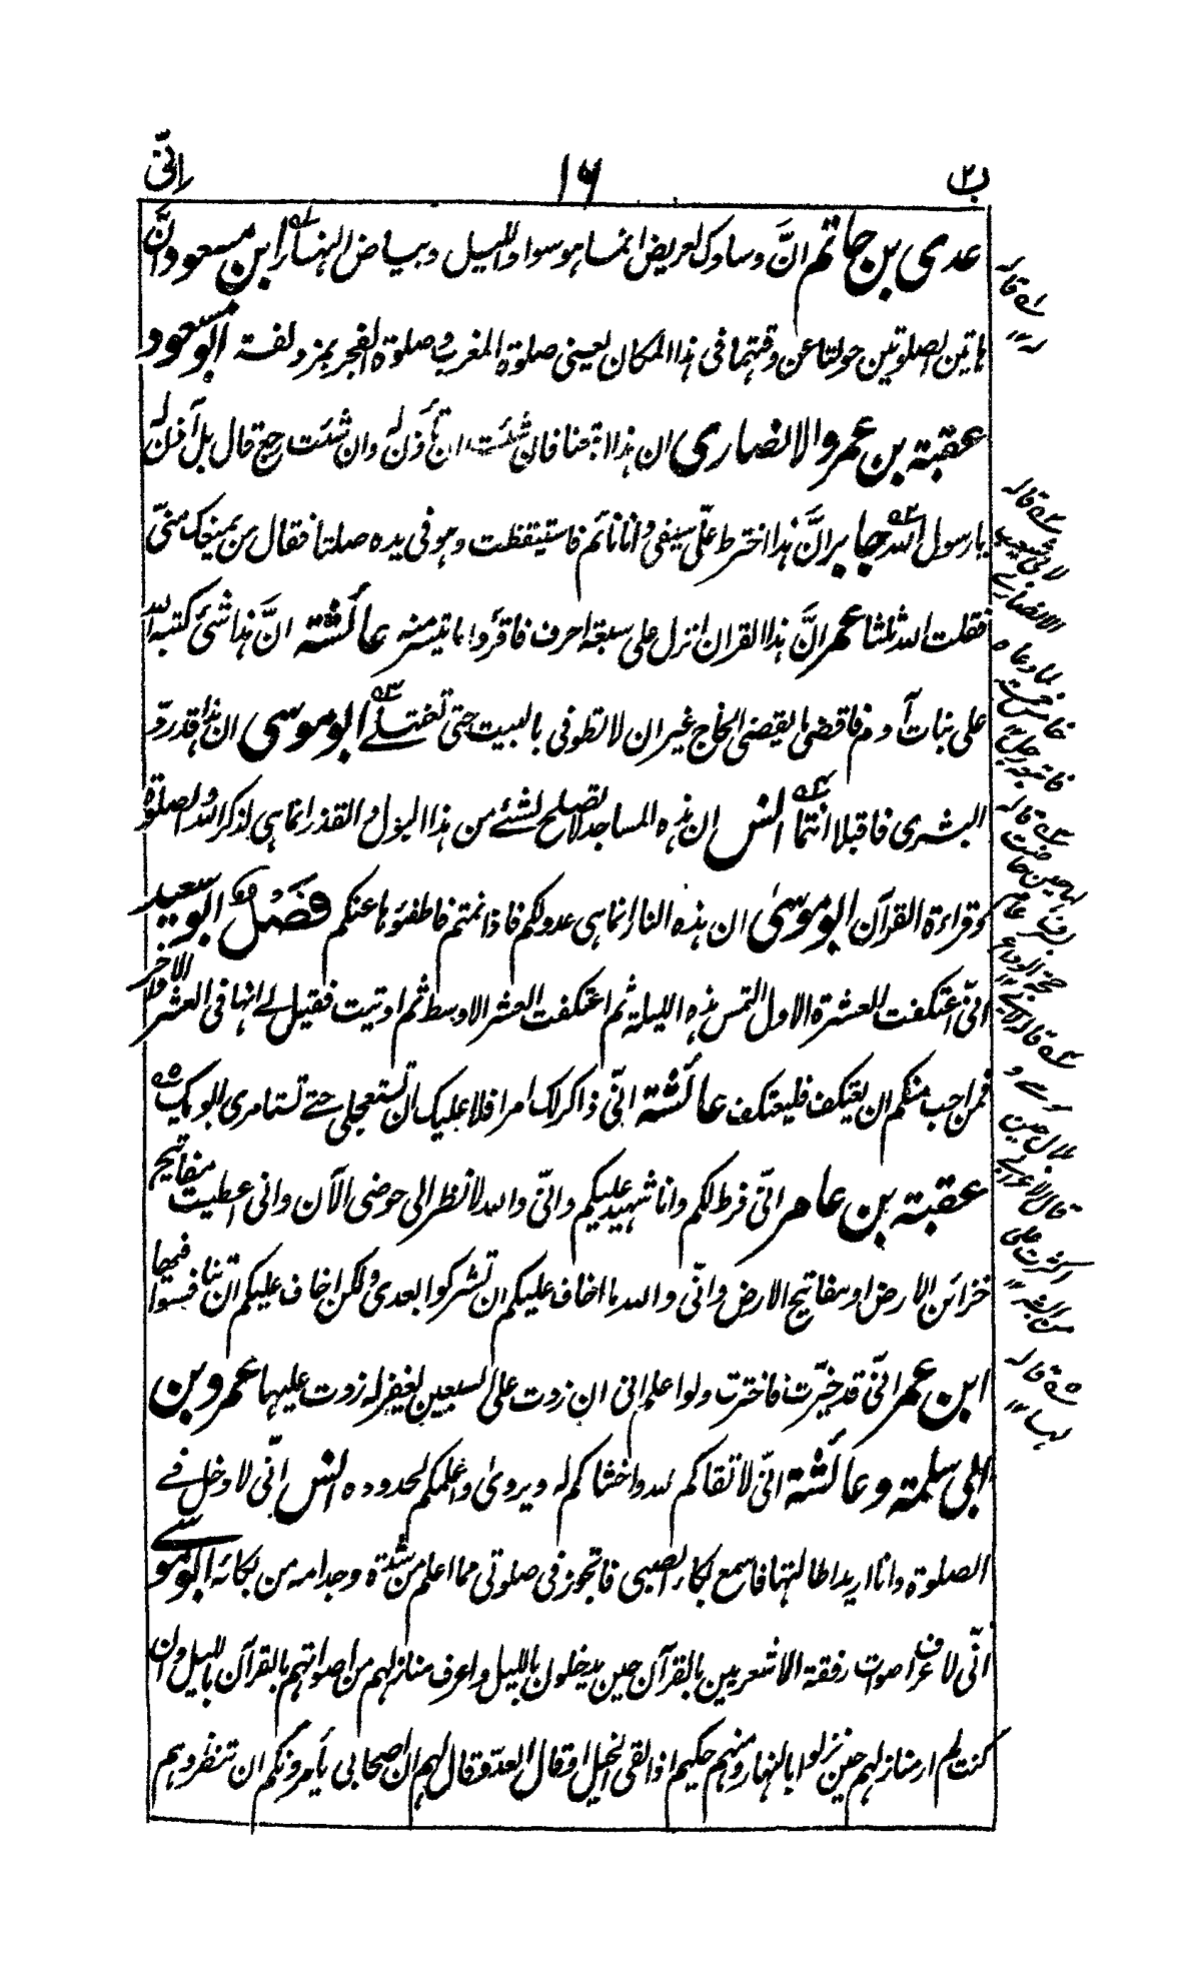 ب٢ ١٦ إنّى
عدى بن حاتم انَّ وسادك لعريض انما هو سواد الليل وبياض النهار ابن مسعود انَّ
هاتين الصلوتين حولتا عن وقتهما فى هذا المكان يعنى صلوة المغرب و صلوة الفجر بمزدلفة ابو مسعود
عقبة بن عمرو الانصارى ان هذا اتبعنا فان شئت ان تأذن له وان شئت رجع قال بل آذن له
يا رسول الله جابر انَّ هذا اخترط علّى سيفى وانا نائم فاستيقظت وهو فى يده صلتا فقال من يمنعك منّى
فقلت الله ثلثا عمر انَّ هذا القران انزل على سبعة احرف فاقرؤا ما تيسر منه عائشة انَّ هذا شئ كتبه الله
على بنات آدم فاقضى ما يقضى الحاج غير ان لا تطوفى بالبيت حتى تغتسلى ابو موسى ان هذا قد ردّ
البشرى فاقبلا انتما انس ان هذه المساجد لا تصلح لشئ من هذا البول و القذر انما هى لذكر الله والصلوة
وقراءة القرآن ابو موسىٰ ان هذه النار انما هى عدو لكم فاذا نمتم فاطفئوها عنكم فصل ابو سعيد
انّى اعتكفت العشرة الاول التمس هذه الليلة ثم اعتكفت العشر الاوسط ثم اوتيت فقيل لے انها فى العشر الاواخر
فمن احب منكم ان يعتكف فليعتكف عائشة انّى ذاكر لك امرا فلا عليك ان تستعجلى حتے تستامرى ابويك
عقبة بن عامر انّى فرط لكم وانا شهيد عليكم وانّى والله لانظر الى حوضى الآن وانى اعطيت مفاتيح
خزائن الارض او مفاتيح الارض وانّى والله ما اخاف عليكم ان تشركوا بعدى ولكن اخاف عليكم ان تنافسوا فيها
ابن عمر انّى قد خيّرت فاخترت ولو اعلم انى ان زدت على السبعين يغفر له زدت عليها عمرو بن
ابى سلمة و عائشة انّى لاتقاكم لله واخشاكم له ويروىٰ واعلمكم لحدوده انس انّى لادخل فے
الصلوة وانا اريد اطالتها فاسمع بكاء الصبى فاتجوز فى صلوتى مما اعلم من شدّة وجد امه من بكائه ابو موسے
انّى لاعرف اصوات رفقة الاشعريين بالقرآن حين يدخلون بالليل واعرف منازلهم من اصواتهم بالقرآن بالليل وان
كنت لم ار منازلهم حين نزلوا بالنهار ومنهم حكيم اذا لقى الخيل او قال العدوّ قال لهم ان اصحابى يأمرونكم ان تنظروهم
قاله
قاله
لابى شعيب
الانصارى
لما دعاه
قاله
لها حين حاضت
قاله
قاله
لها